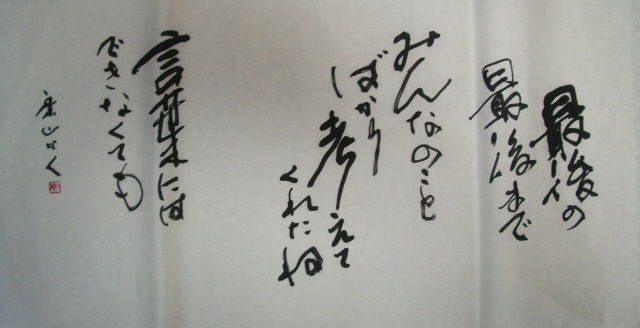 最後の
最後まで
みんなのこと
ばかり
考えて
くれたね
言葉には
できなくても